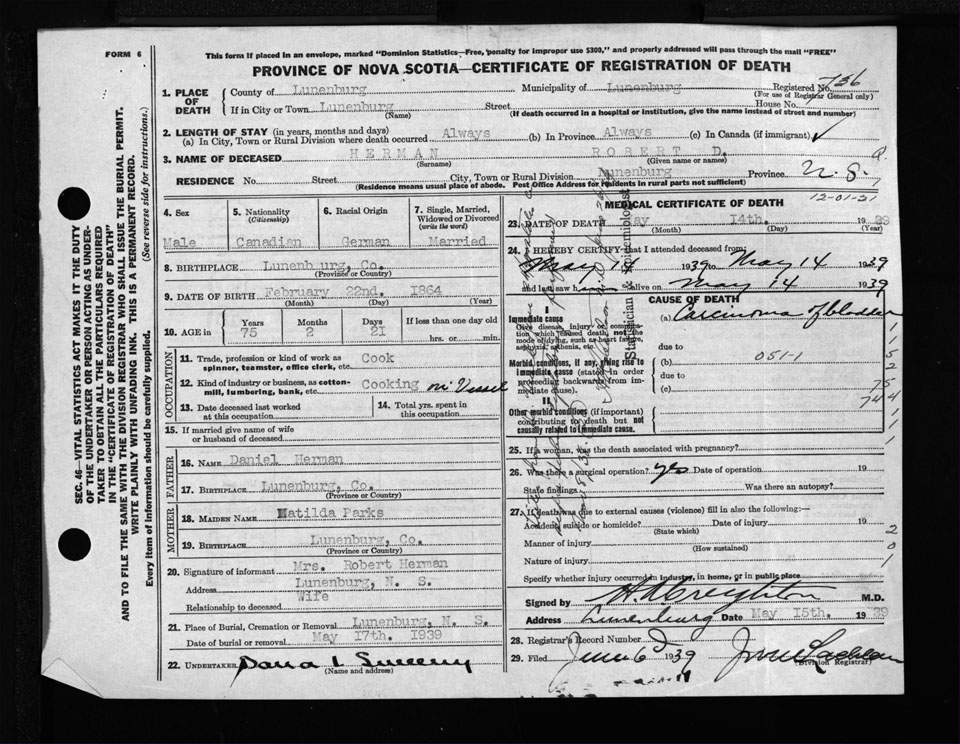 FORM 6
This form if placed in an envelope, marked "Dominion Statistics—Free, penalty for improper use $300," and properly addressed will pass through the mail "FREE"
PROVINCE OF NOVA SCOTIA—CERTIFICATE OF REGISTRATION OF DEATH
SEC. 46—VITAL STATISTICS ACT MAKES IT THE DUTY
OF THE UNDERTAKER OR PERSON ACTING AS UNDER-
TAKER TO OBTAIN ALL THE PARTICULARS REQUIRED
IN THE "CERTIFICATE OF REGISTRATION OF DEATH"
AND TO FILE THE SAME WITH THE DIVISION REGISTRAR WHO SHALL ISSUE THE BURIAL PERMIT.
WRITE PLAINLY WITH UNFADING INK. THIS IS A PERMANENT RECORD.
Every item of information should be carefully supplied. (See reverse side for instructions.)
1. PLACE OF DEATH
County of Lunenburg Municipality of Lunenburg Registered No. 736
(For use of Registrar General only)
If in City or Town Lunenburg Street House No.
(Name) (If death occurred in a hospital or institution, give the name instead of street and number)
2. LENGTH OF STAY (in years, months and days)
(a) In City, Town or Rural Division where death occurred Always (b) In Province Always (c) In Canada (if immigrant) ✓
3. NAME OF DECEASED HERMAN ROBERT D.
(Surname) (Given name or names)
RESIDENCE No. Street City, Town or Rural Division Lunenburg Province N.S.
(Residence means usual place of abode. Post Office Address for residents in rural parts not sufficient)
4. Sex
Male
5. Nationality
(Citizenship)
Canadian
6. Racial Origin
German
7. Single, Married,
Widowed or Divorced
(write the word)
Married
8. BIRTHPLACE Lunenburg, Co.
(Province or Country)
9. DATE OF BIRTH February 22nd. 1864
(Month) (Day) (Year)
10. AGE in
Years Months Days If less than one day old
75 2 21 hrs. or min.
OCCUPATION
11. Trade, profession or kind of work as
spinner, teamster, office clerk, etc. Cook
12. Kind of industry or business, as cotton-
mill, lumbering, bank, etc. Cooking on Vessel
13. Date deceased last worked
at this occupation
14. Total yrs. spent in
this occupation
15. If married give name of wife
or husband of deceased
FATHER
16. NAME Daniel Herman
17. BIRTHPLACE Lunenburg, Co.
(Province or Country)
MOTHER
18. MAIDEN NAME Matilda Parks
19. BIRTHPLACE Lunenburg, Co.
(Province or Country)
20. Signature of informant Mrs. Robert Herman
Address Lunenburg, N. S.
Relationship to deceased Wife
21. Place of Burial, Cremation or Removal Lunenburg, N. S.
Date of burial or removal May 17th. 1939
22. UNDERTAKER Dana L Sweeny
(Name and address)
12-01-21
MEDICAL CERTIFICATE OF DEATH
23. DATE OF DEATH May 14th. 1939
(Month) (Day) (Year)
24. I HEREBY CERTIFY that I attended deceased from
May 14 1939 to May 14 1939
and last saw h alive on May 14 1939
CAUSE OF DEATH
Immediate cause
Give disease, injury or complica-
tion which caused death, not the
mode of dying, such as heart failure,
asphyxia, asthenia, etc.
(a) Carcinoma of bladder
due to
Morbid conditions, if any, giving rise to
immediate cause (stated in order
proceeding backwards from im-
mediate cause).
(b) 051-1
due to
(c)
II.
Other morbid conditions (if important)
contributing to death but not
causally related to immediate cause.
Statistician & Epidemiologist
25. If a woman, was the death associated with pregnancy?
26. Was there a surgical operation? yes Date of operation 19
State findings Was there an autopsy?
27. If death was due to external causes (violence) fill in also the following:—
Accident, suicide or homicide? Date of injury 19
(State which)
Manner of injury
(How sustained)
Nature of injury
Specify whether injury occurred in industry, in home, or in public place
Signed by H A Creighton M.D.
Address Lunenburg Date May 15th. 1939
28. Registrar's Record Number
29. Filed June 6 1939
(Division Registrar)